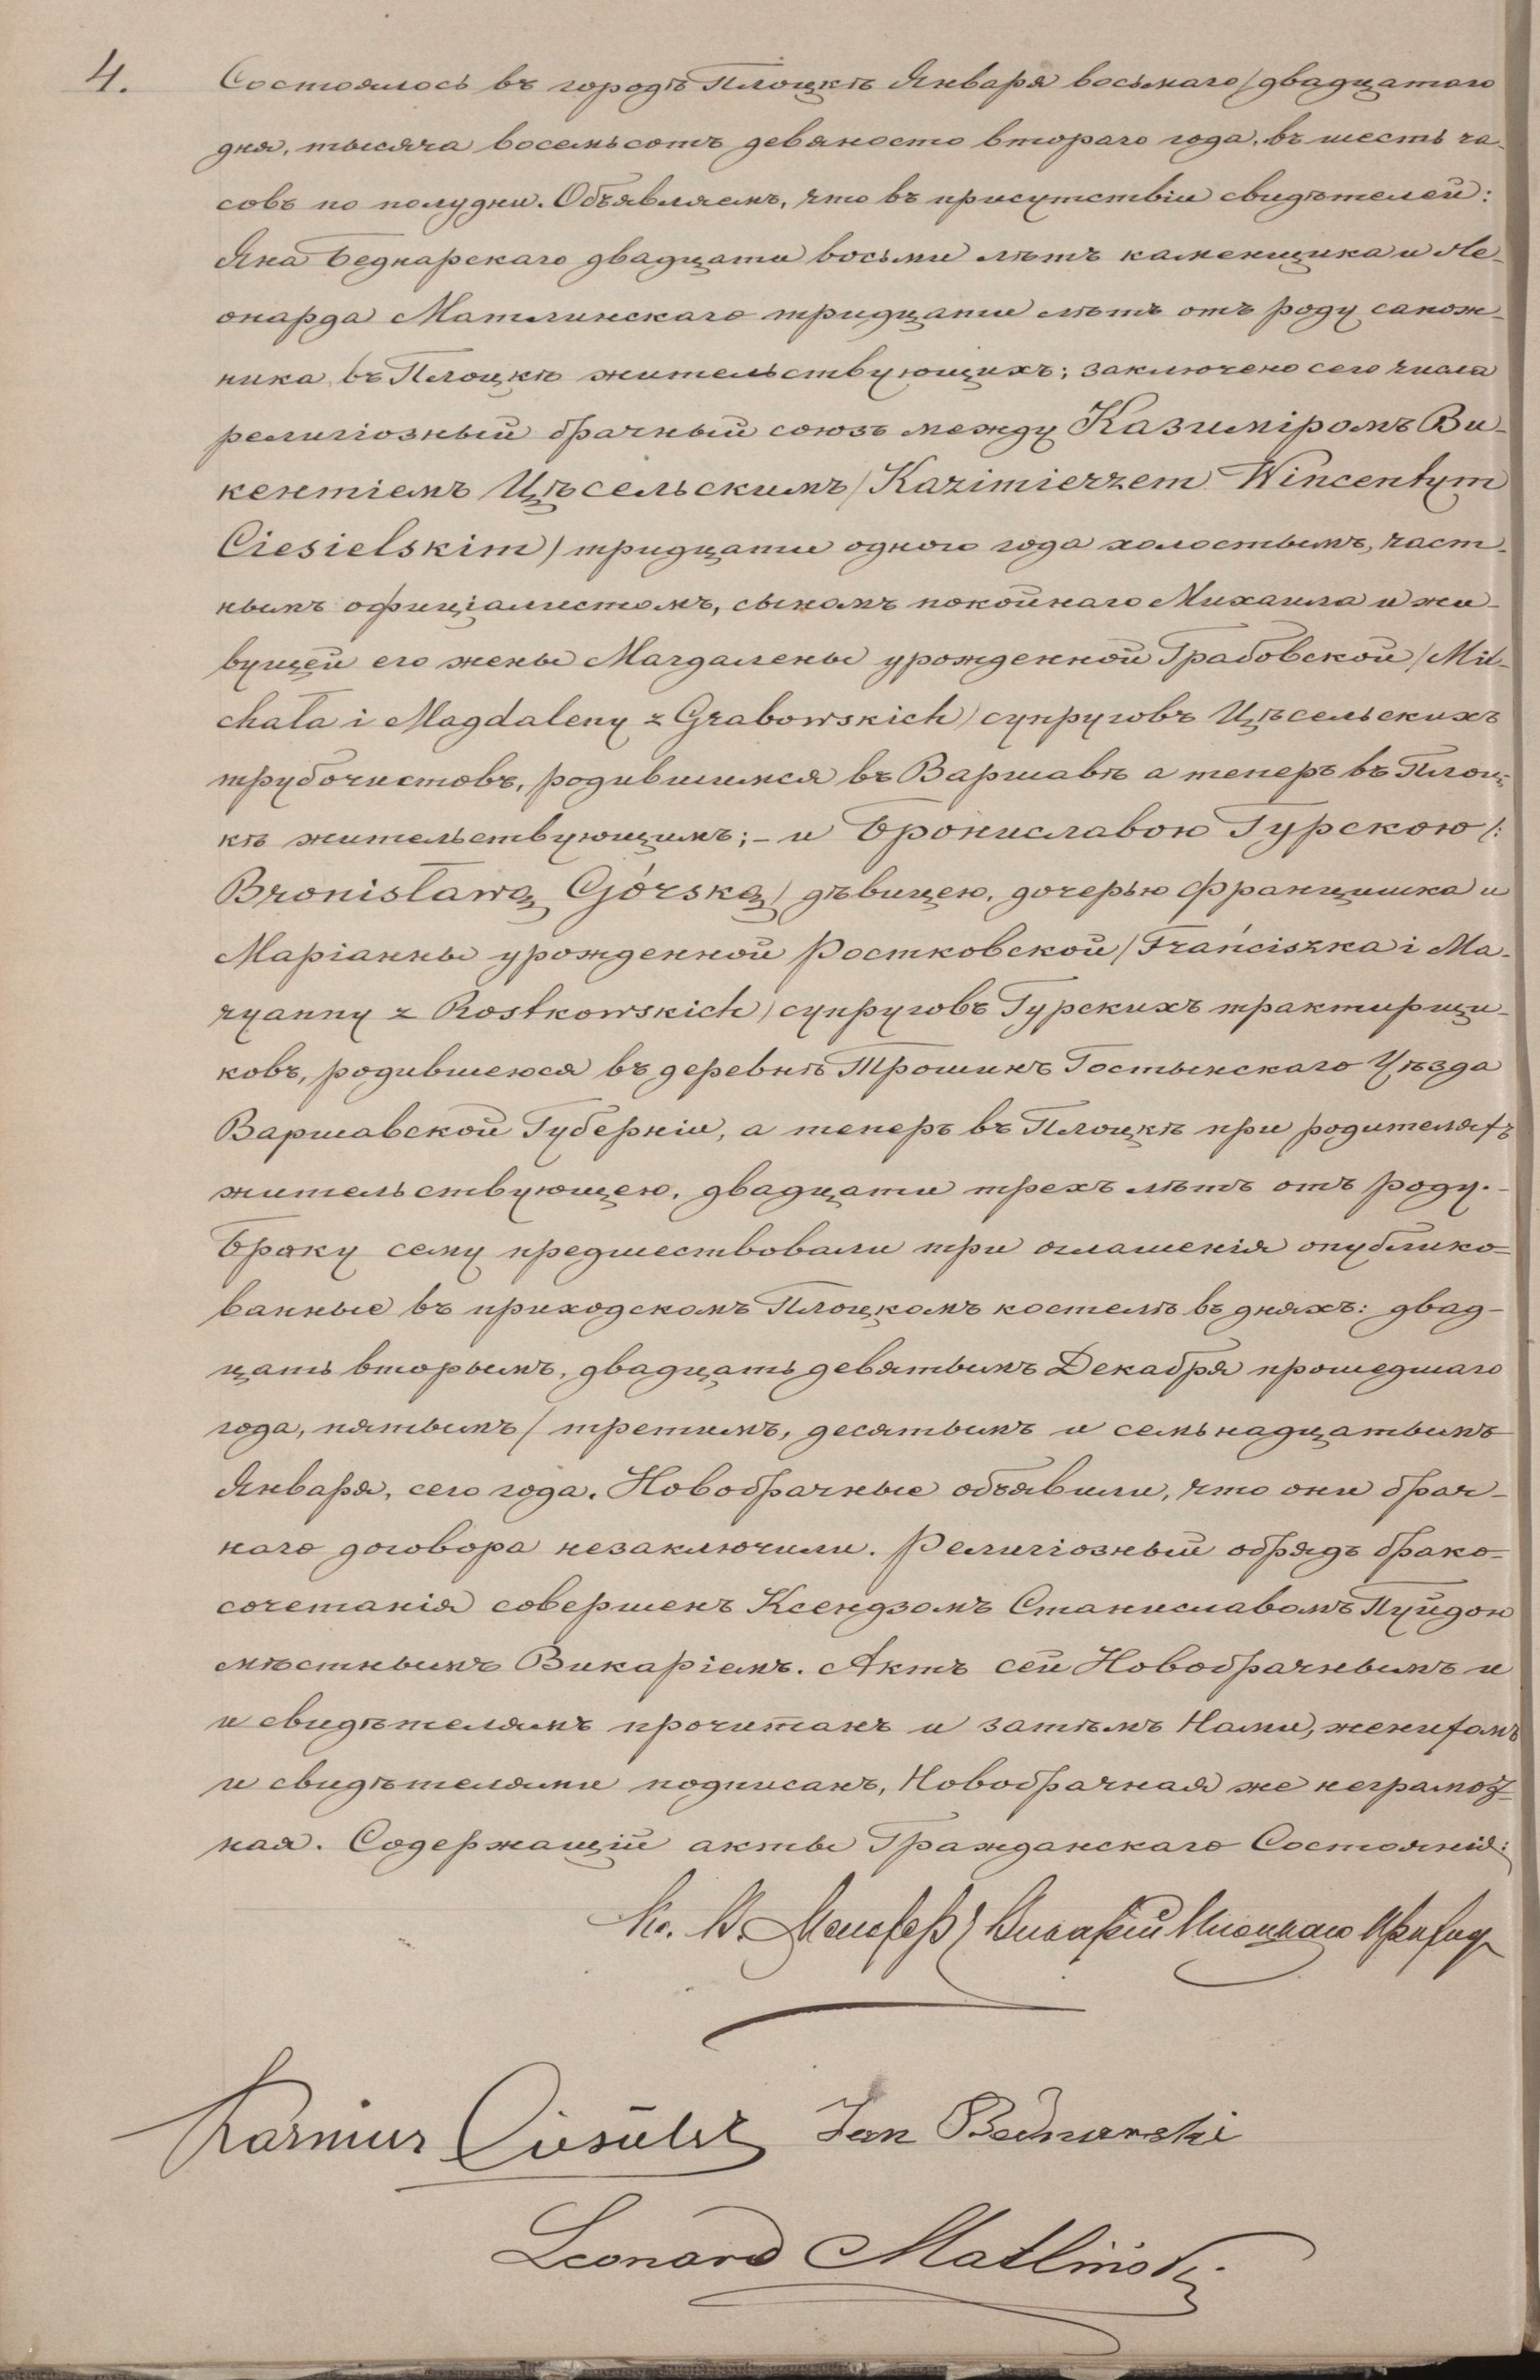 4.
Состоялось въ городѣ Плоцкѣ Января восьмаго/двадцатаго
дня, тысяча восемьсотъ девяносто втораго года, въ шесть ча-
совъ по полудни. Объявляемъ, что въ присутствіи свидѣтелей:
Яна Беднарскаго двадцати восьми лѣтъ каменщика и Ле-
онарда Матлинскаго тридцати лѣтъ отъ роду сапож-
ника, въ Плоцкѣ жительствующихъ; заключено сего числа
религіозный брачный союзъ между Казиміромъ Ви-
кентіемъ Цѣсельскимъ /Kazimierzem Wincentym
Ciesielskim/ тридцати одного года холостымъ, част-
нымъ официіалистомъ, сыномъ покойнаго Михаила и жи-
вущей его жены Магдалены урожденной Грабовской /Mi-
chała i Magdaleny z Grabowskich/ супруговъ Цѣсельскихъ
трубочистовъ, родившимся въ Варшавѣ а теперъ въ Плоц-
кѣ жительствующимъ; - и Брониславою Гурскою /:
Bronisławą Górską/ дѣвицею, дочерью Францишка и
Маріанны урожденной Ростковской /Franciszka i Ma-
ryanny z Rostkowskich/ супруговъ Гурскихъ трактирщи-
ковъ, родившеюся въ деревнѣ Трошинъ Гостынскаго Уѣзда
Варшавской Губерніи, а теперъ въ Плоцкѣ при родителяхъ
жительствующею, двадцати трехъ лѣтъ отъ роду. -
Браку сему предшествовали три оглашенія опублико-
ванные въ приходскомъ Плоцкомъ костелѣ въ дняхъ: двад-
цать вторымъ, двадцать девятымъ Декабря прошедшаго
года, пятымъ / третимъ, десятымъ и семьнадцатымъ
Января, сего года. Новобрачные объявили, что они брач-
наго договора незаключили. Религіозный обрядъ брако-
сочетанія совершенъ Ксендзомъ Станиславомъ Пуйдою
мѣстнымъ Викаріемъ. Актъ сей Новобрачнымъ и
и свидѣтелямъ прочитанъ и затѣмъ Нами, женихомъ
и свидѣтелями подписанъ, Новобрачная же неграмот-
ная. Содержащій акты Гражданскаго Состоянія:
Кс. Викарій Плоцкаго Прихода
Kazimierz Ciesielski Jan Bednarski
Leonard Matliński